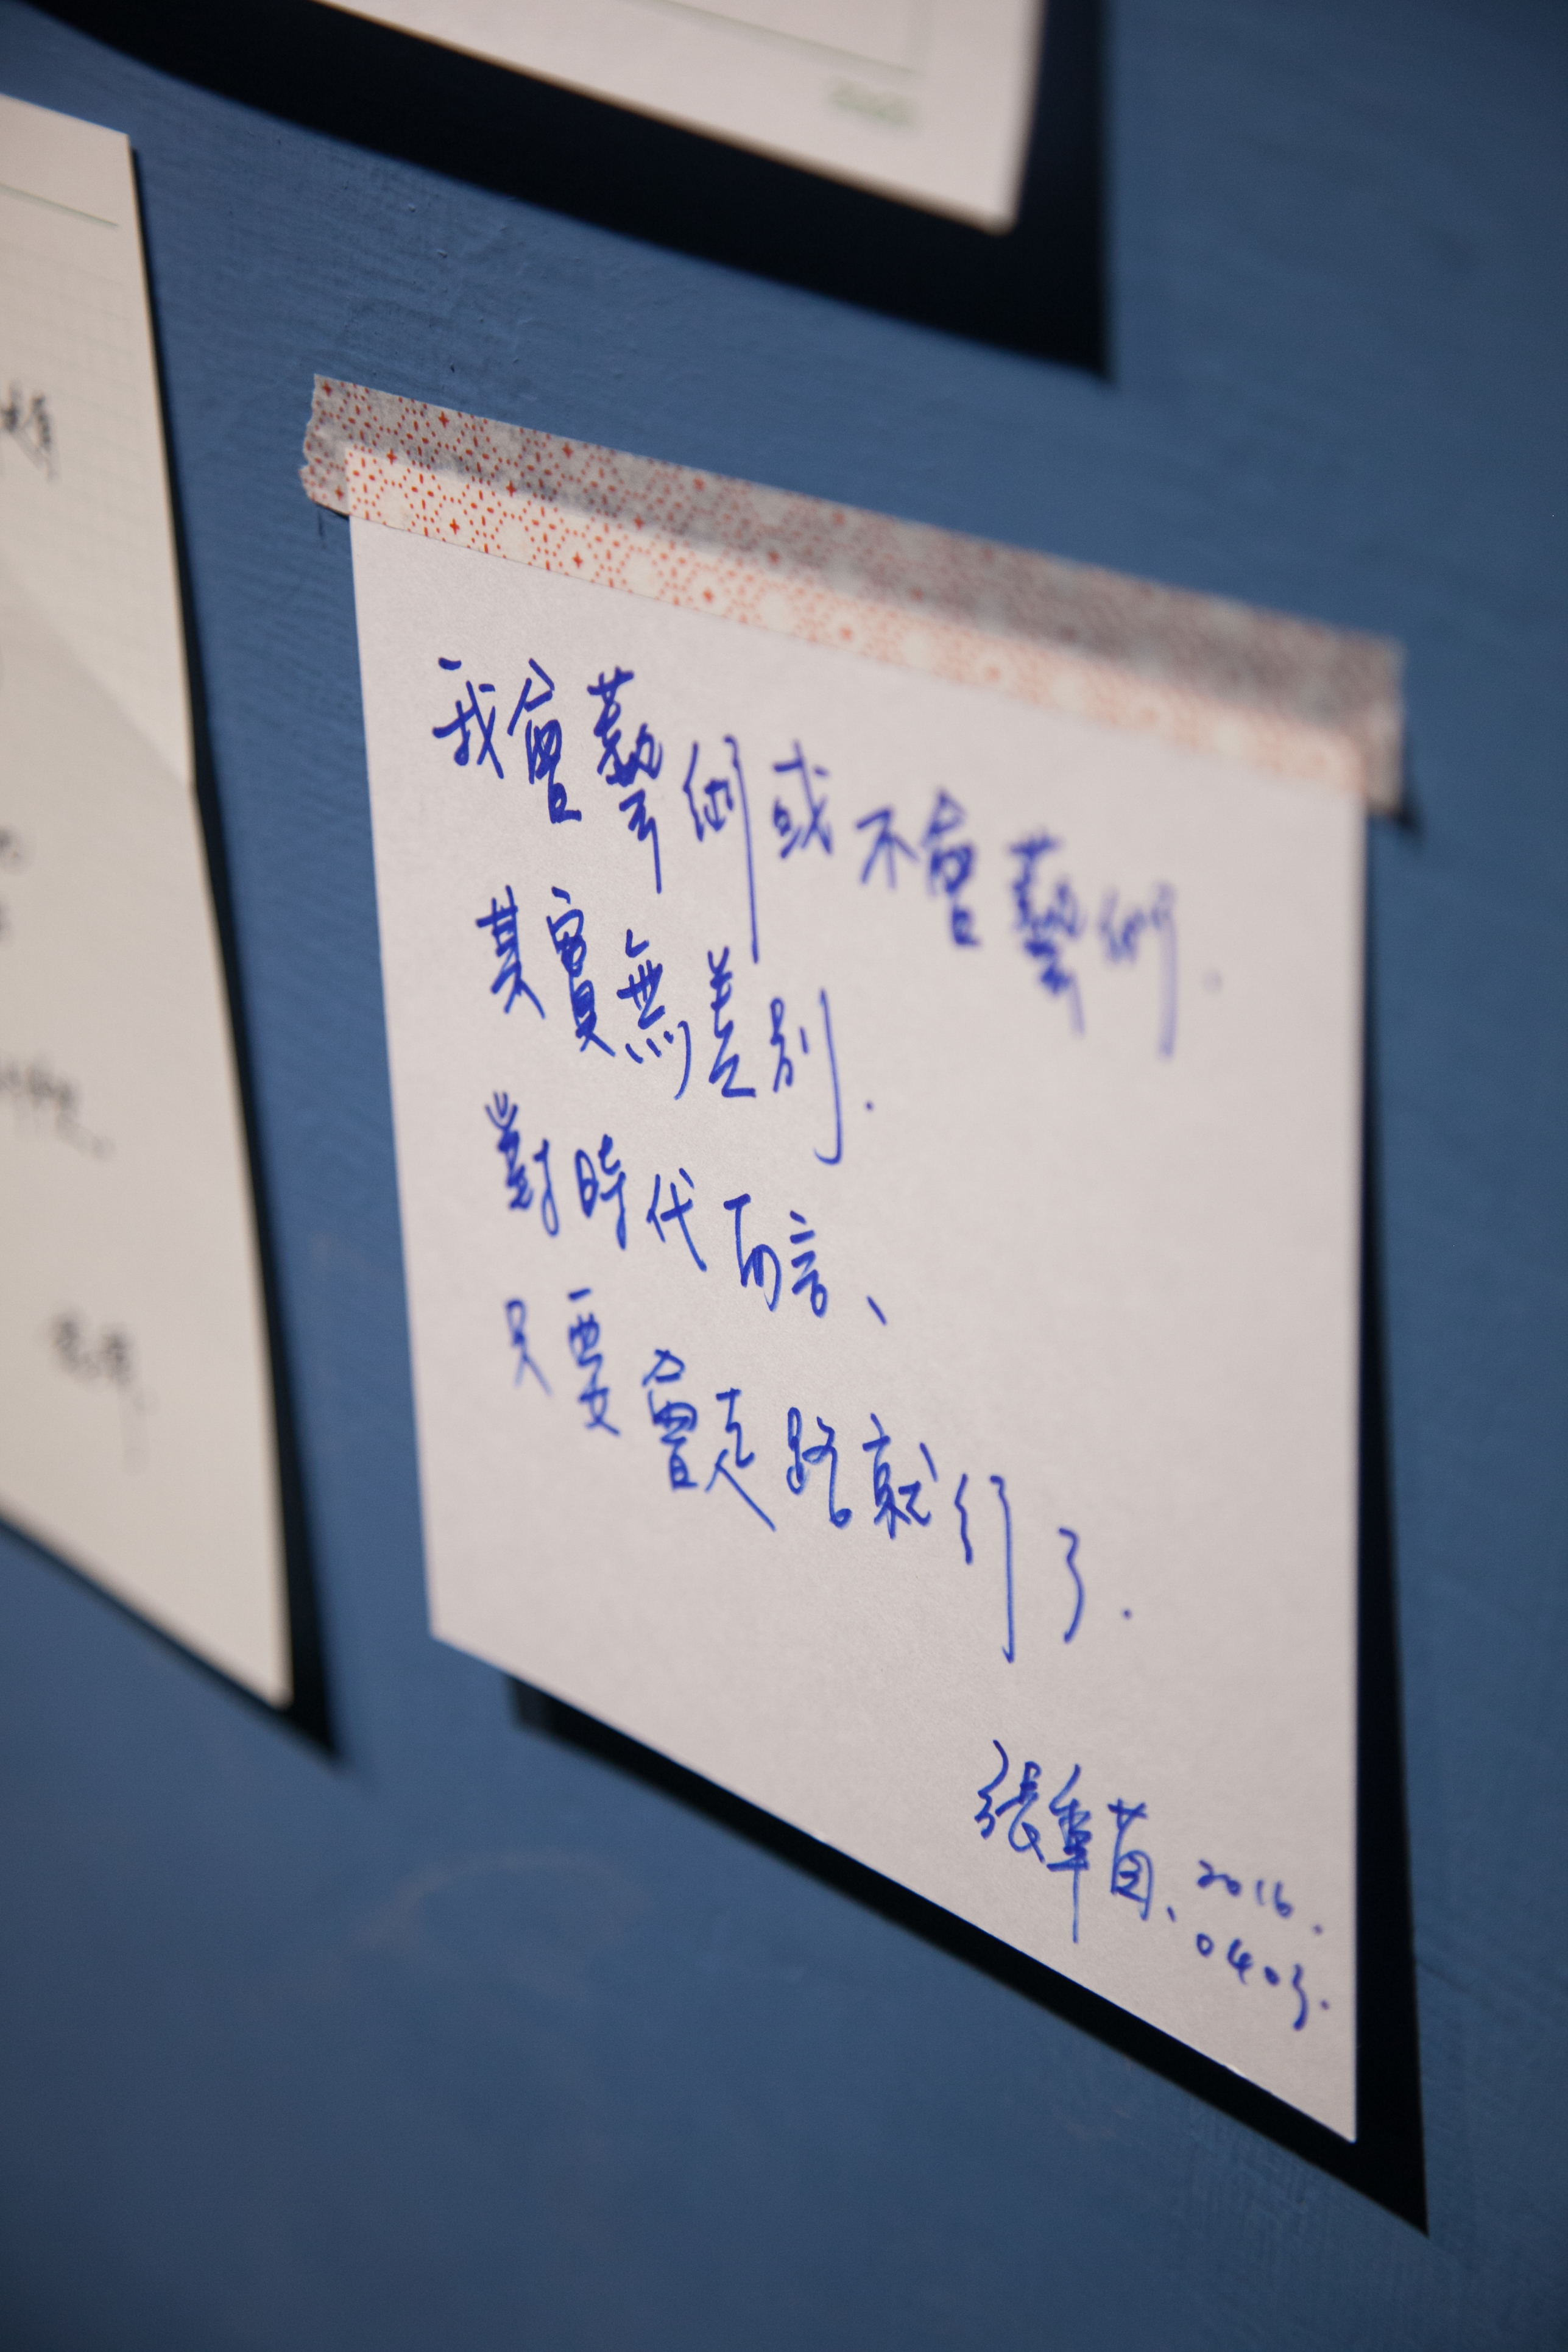 我會藝術或不會藝術.
其實無差別.
對時代而言、
只要會走路就行了.
張 2016.
0403.